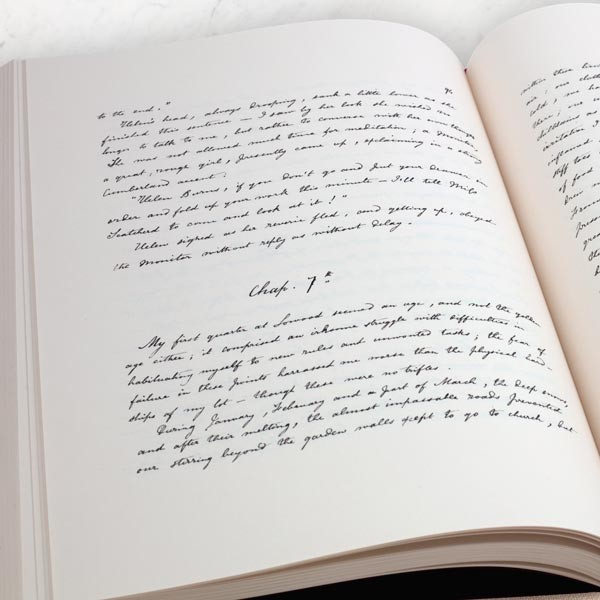 to the end."
Helen's head, always drooping, sank a little lower as she
finished this sentence — I saw by her look she wished no
longer to talk to me, but rather to converse with her own thoughts
She was not allowed much time for meditation; a Monitor,
a great, rough girl, presently came up, exclaiming in a strong
Cumberland accent.
"Helen Burns, if you don't go and put your drawer in
order and fold up your work this minute — I'll tell Miss
Scatcherd to come and look at it!"
Helen sighed as her reverie fled, and getting up, obeyed
the Monitor without reply as without delay.
Chap. 7th
My first quarter at Lowood seemed an age, and not the golden
age either; it comprised an irksome struggle with difficulties in
habituating myself to new rules and unwonted tasks; the fear of
failure in these points harrassed me worse than the physical hard-
ships of my lot — though these were no trifles.
During January, February and a part of March, the deep snows,
and after their melting, the almost impassable roads prevented
our stirring beyond the garden walls except to go to church, but
within these
air; our clothi
cold; we ha
there; our
chilblains as
irritation I
inflamed
stiff toes
of food